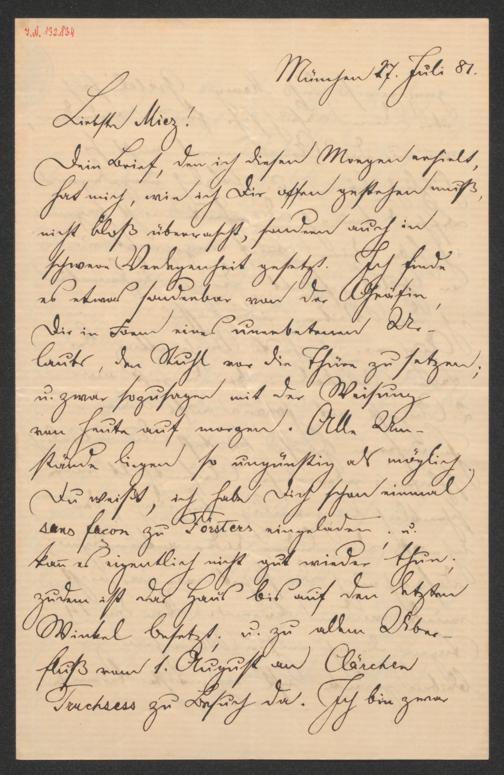 J.N. 132.134
München 27. Juli 81.
Liebste Miez!
Dein Brief, den ich diesen Morgen erhielt,
hat mich, wie ich Dir offen gestehen muß,
nicht bloß überrascht, sondern auch in
schwere Verlegenheit gesetzt. Ich finde
es etwas sonderbar von der Gräfin,
Dir in Form eines unerbetenen Ur-
laubs, den Stuhl vor die Thüre zu setzen;
u. zwar sozusagen mit der Weisung
von heute auf morgen. Alle Um-
stände liegen so ungünstig als möglich.
Du weißt, ich habe Dich schon einmal
sans façon zu Försters eingeladen, u.
kann es eigentlich nicht gut wieder thun;
zudem ist das Haus bis auf den letzten
Winkel besetzt, u. zu allem Über-
fluß vom 1. August an Clärchen
Truchsess zu Besuch da. Ich bin zwar